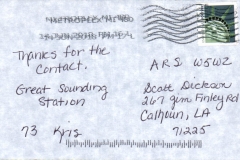 METROPLEX MI 480
Thanks for the
Contact.
Great Sounding
Station
73 Kris
ARS W5WZ
Scott Dickson
267 Jim Finley Rd
Calhoun, LA
71225